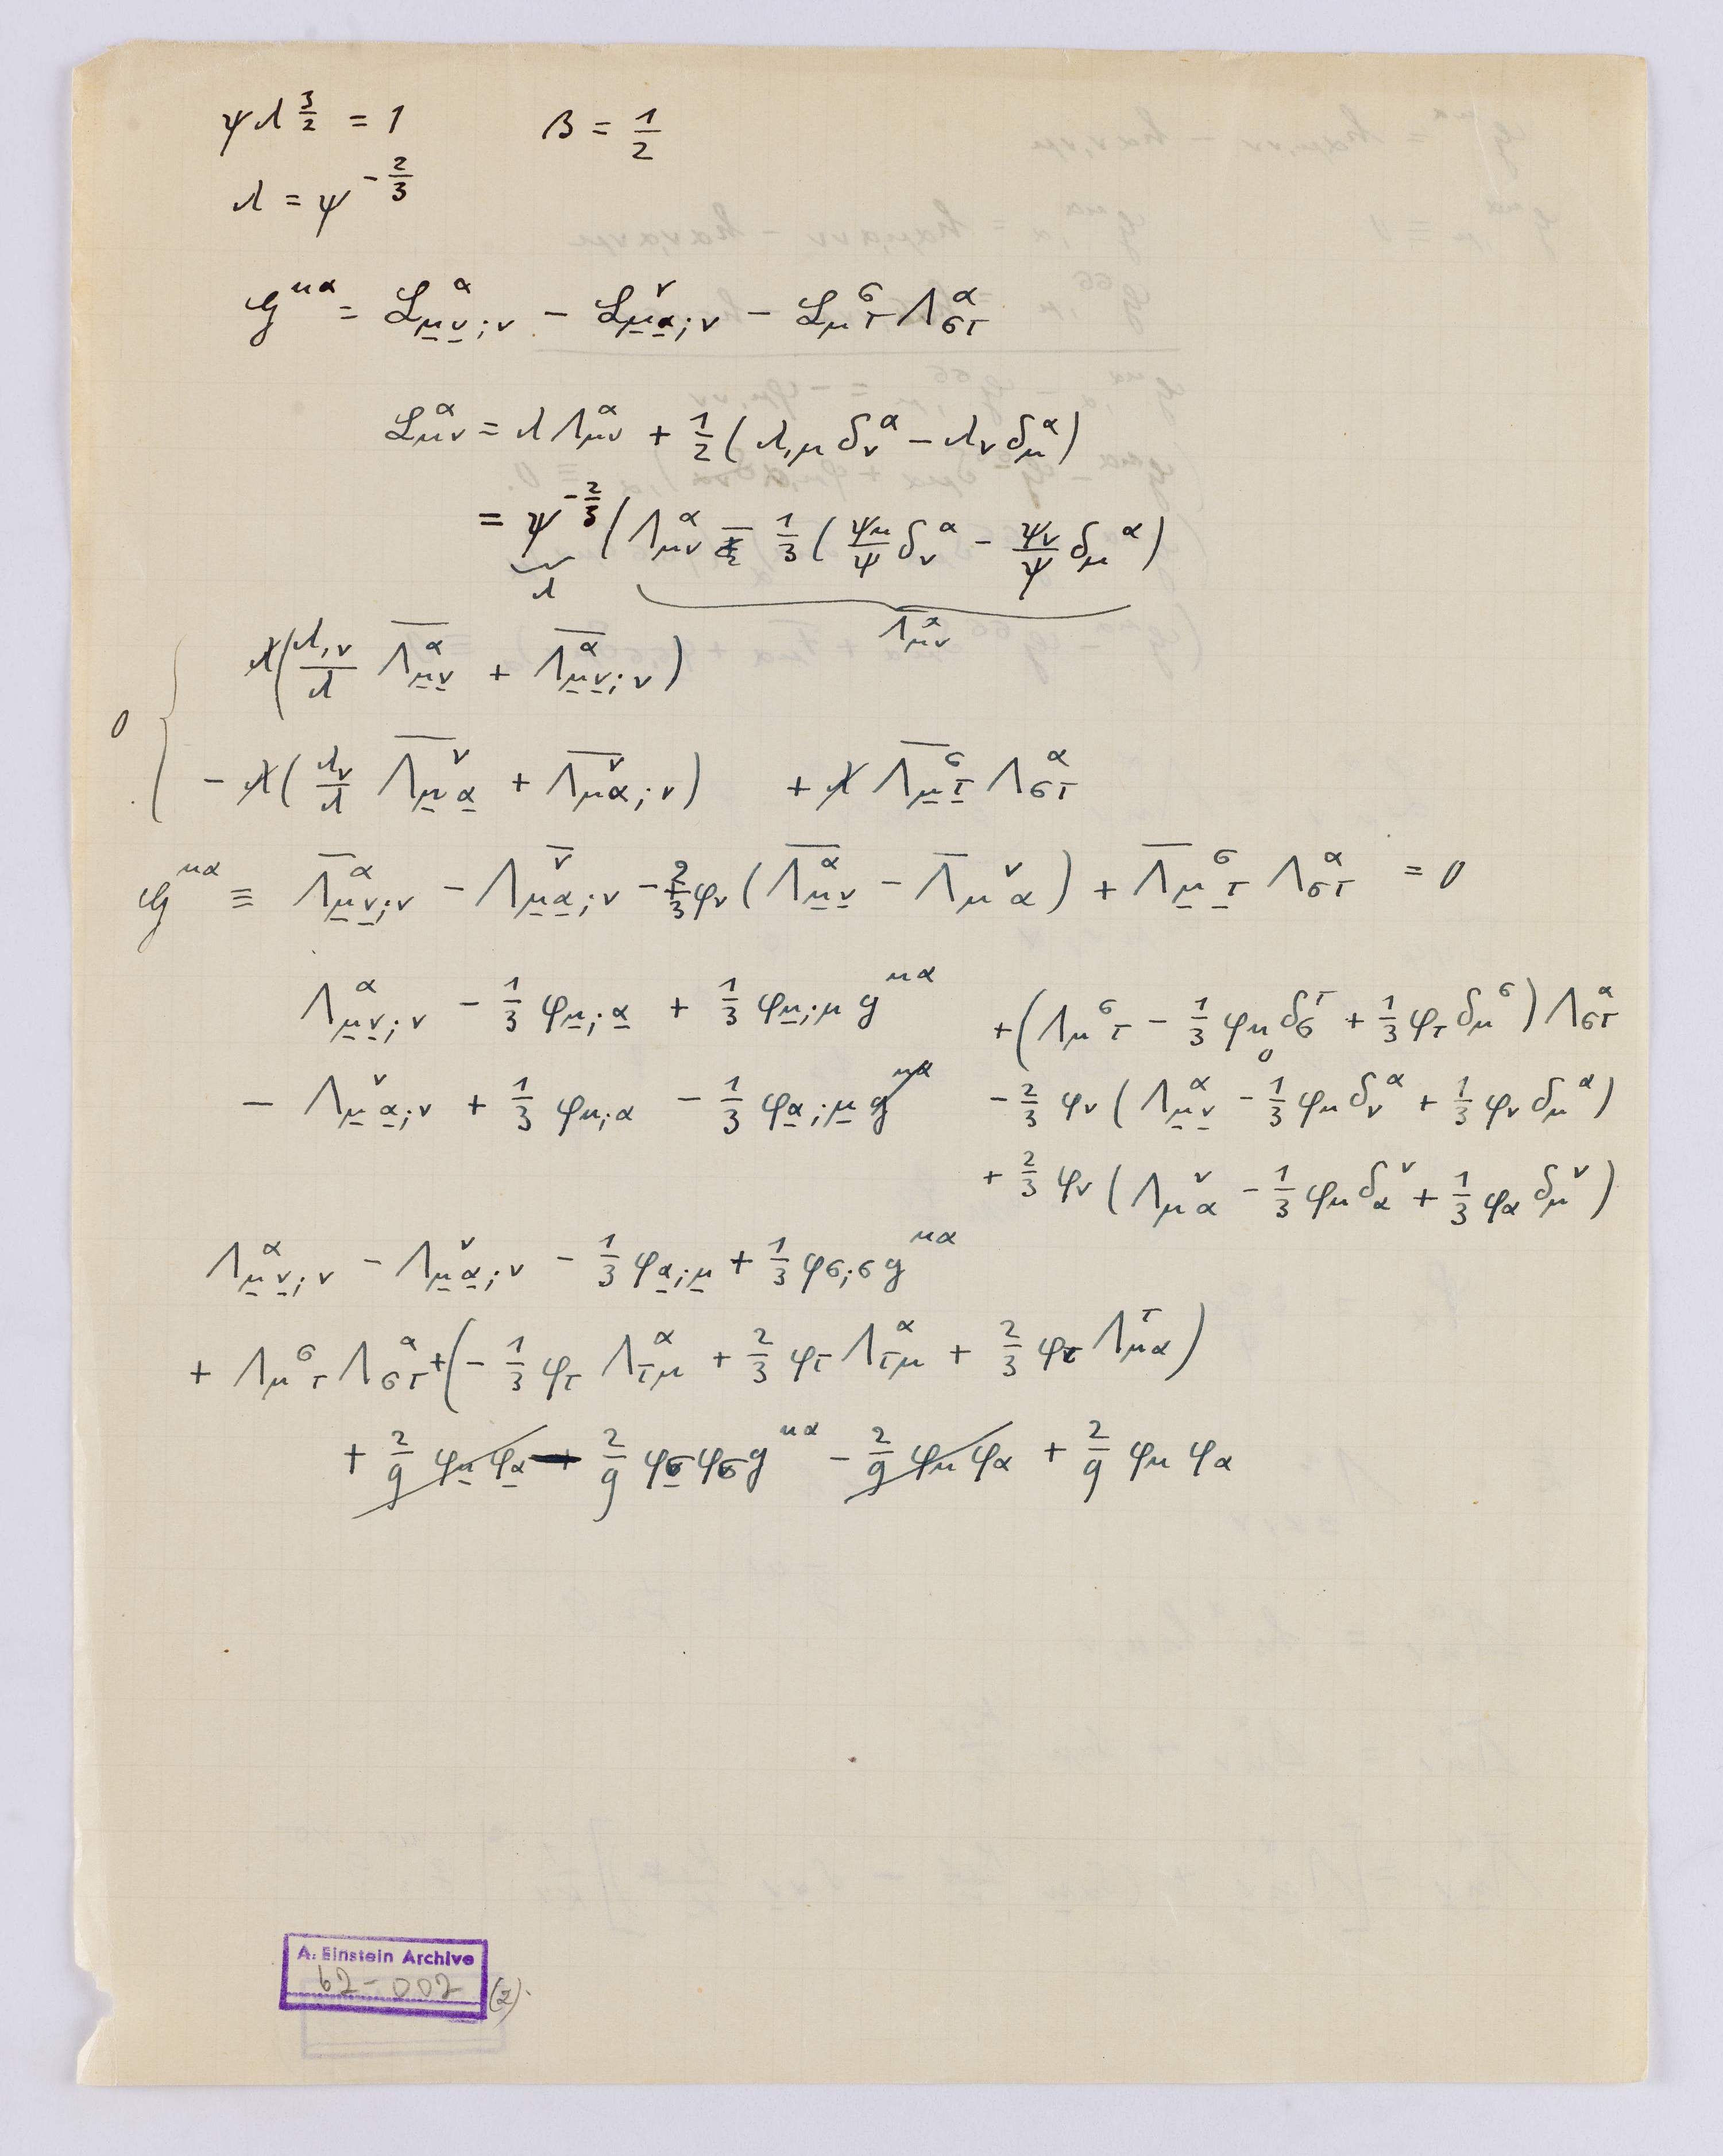 ψλ^{3/2} = 1    β = 1/2
λ = ψ^{-2/3}
𝒢^{μα} = ℒ_{μ̲ν̲;ν}^{α} − ℒ_{μ̲α̲;ν}^{ν} − ℒ_{μτ}^{σ} Λ_{στ}^{α}
ℒ_{μν}^{α} = λΛ_{μν}^{α} + 1/2 (λ_{,μ} δ_ν^α − λ_ν δ_μ^α)
= ψ^{-2/3} (Λ_{μν}^{α} − 1/3 (ψ_μ/ψ δ_ν^α − ψ_ν/ψ δ_μ^α)
λ    Λ̅_{μν}^{α}
λ(λ_{,ν}/λ Λ̅_{μ̲ν̲}^{α} + Λ̅_{μ̲ν̲;ν}^{α})
0 {
− λ(λ_ν/λ Λ̅_{μ̲α̲}^{ν} + Λ̅_{μ̲α̲;ν}^{ν})    + λ Λ̅_{μ̲τ̲}^{σ} Λ_{στ}^{α}
𝒢^{μα} ≡ Λ̅_{μ̲ν̲;ν}^{α} − Λ̅_{μ̲α̲;ν}^{ν} − 2/3 φ_ν (Λ̅_{μ̲ν̲}^{α} − Λ̅_{μα}^{ν}) + Λ̅_{μ̲τ̲}^{σ} Λ_{στ}^{α} = 0
Λ_{μ̲ν̲;ν}^{α} − 1/3 φ_{μ̲;α̲} + 1/3 φ_{μ̲;μ} g^{μα}    + (Λ_{μτ}^{σ} − 1/3 φ_μ δ_σ^τ + 1/3 φ_τ δ_μ^σ) Λ_{στ}^{α}
0
− Λ_{μ̲α̲;ν}^{ν} + 1/3 φ_{μ;α} − 1/3 φ_{α̲;μ̲} g^{μα}    − 2/3 φ_ν (Λ_{μ̲ν̲}^{α} − 1/3 φ_μ δ_ν^α + 1/3 φ_ν δ_μ^α)
+ 2/3 φ_ν (Λ_{μα}^{ν} − 1/3 φ_μ δ_α^ν + 1/3 φ_α δ_μ^ν)
Λ_{μ̲ν̲;ν}^{α} − Λ_{μ̲α̲;ν}^{ν} − 1/3 φ_{α̲;μ̲} + 1/3 φ_{σ;σ} g^{μα}
+ Λ_{μτ}^{σ} Λ_{στ}^{α} + (− 1/3 φ_τ Λ_{τμ}^{α} + 2/3 φ_τ Λ_{τμ}^{α} + 2/3 φ_τ Λ_{μα}^{τ})
+ 2/9 φ_{μ̲} φ_{α̲} − 2/9 φ_{σ̲} φ_σ g^{μα} − 2/9 φ_μ φ_α + 2/9 φ_μ φ_α
A. Einstein Archive
62-002 (2).